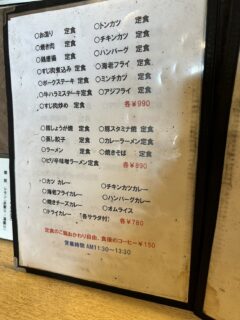 ○お造り 定食
○トンカツ 定食
○焼き肉 定食
○チキンカツ 定食
定食
○ハンバーグ 定食
○すじ肉煮込み 定食
○海老フライ 定食
○ポークステーキ 定食
○ミンチカツ 定食
○牛ハラミステーキ定食
○アジフライ 定食
○すじ肉炒め 定食
各¥990
○豚しょうが焼 定食
○豚スタミナ焼 定食
○蒸し餃子 定食
○カレーラーメン定食
○ラーメン 定食
○焼きそば 定食
○ピリ辛味噌ラーメン定食
各¥890
○カツ カレー
○チキンカツカレー
○海老フライカレー
○ハンバーグカレー
○焼きチーズカレー
○オムライス
○ドライカレー 「各サラダ付」
各¥780
定食のご飯おかわり自由、食後のコーヒー¥150
営業時間 AM11:30~13:30